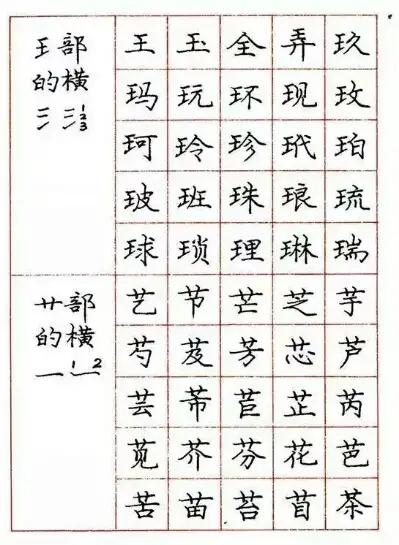 王部
的横
三 三 1 2 3
王 玉 全 弄 玖
玛 玩 环 现 玫
珂 玲 珍 玳 珀
玻 班 珠 琅 琉
球 琐 理 琳 瑞
艹部
的横
一 一 1 2
艺 节 芒 芝 芋
芍 芨 芳 芯 芦
芸 芾 苣 芷 芮
苋 芥 芬 花 芭
苦 苗 苔 苜 茶